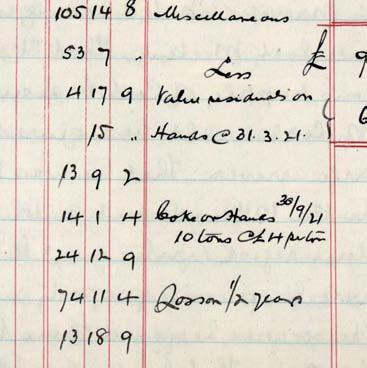 105 14 8 Miscellaneous
53 7 "
Less £ 9
4 17 9 Value residuals on
15 " Hands @ 31.3.21.
13 9 2
14 1 4 Coke on Hands 30/9/21
10 tons @ £4 per ton
24 12 9
74 11 4 Loss on 1/2 years
13 18 9